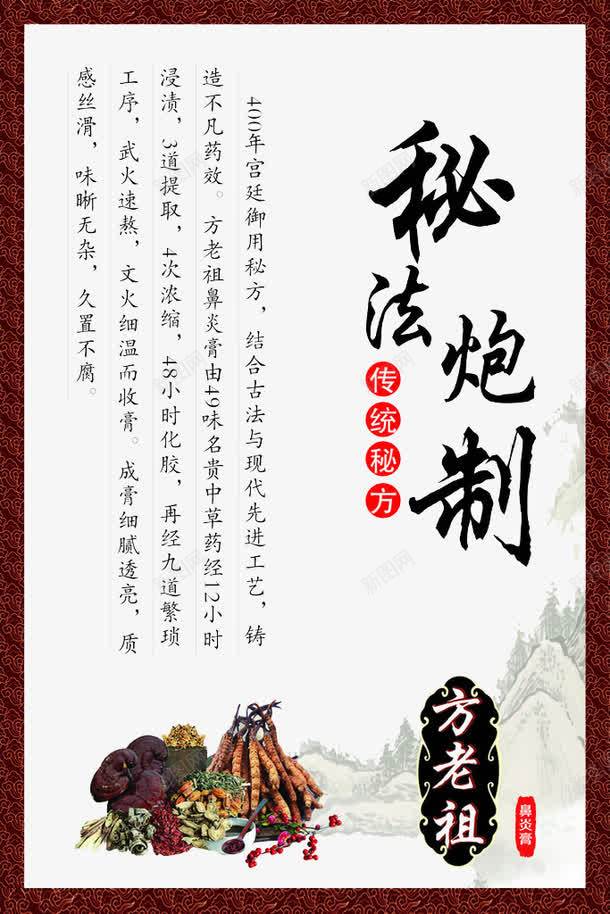 秘法炮制
传统秘方
400年宫廷御用秘方，结合古法与现代先进工艺，铸
造不凡药效。方老祖鼻炎膏由49味名贵中草药经12小时
浸渍，3道提取，4次浓缩，48小时化胶，再经九道繁琐
工序，武火速熬，文火细温而收膏。成膏细腻透亮，质
感丝滑，味晰无杂，久置不腐。
方老祖
鼻炎膏